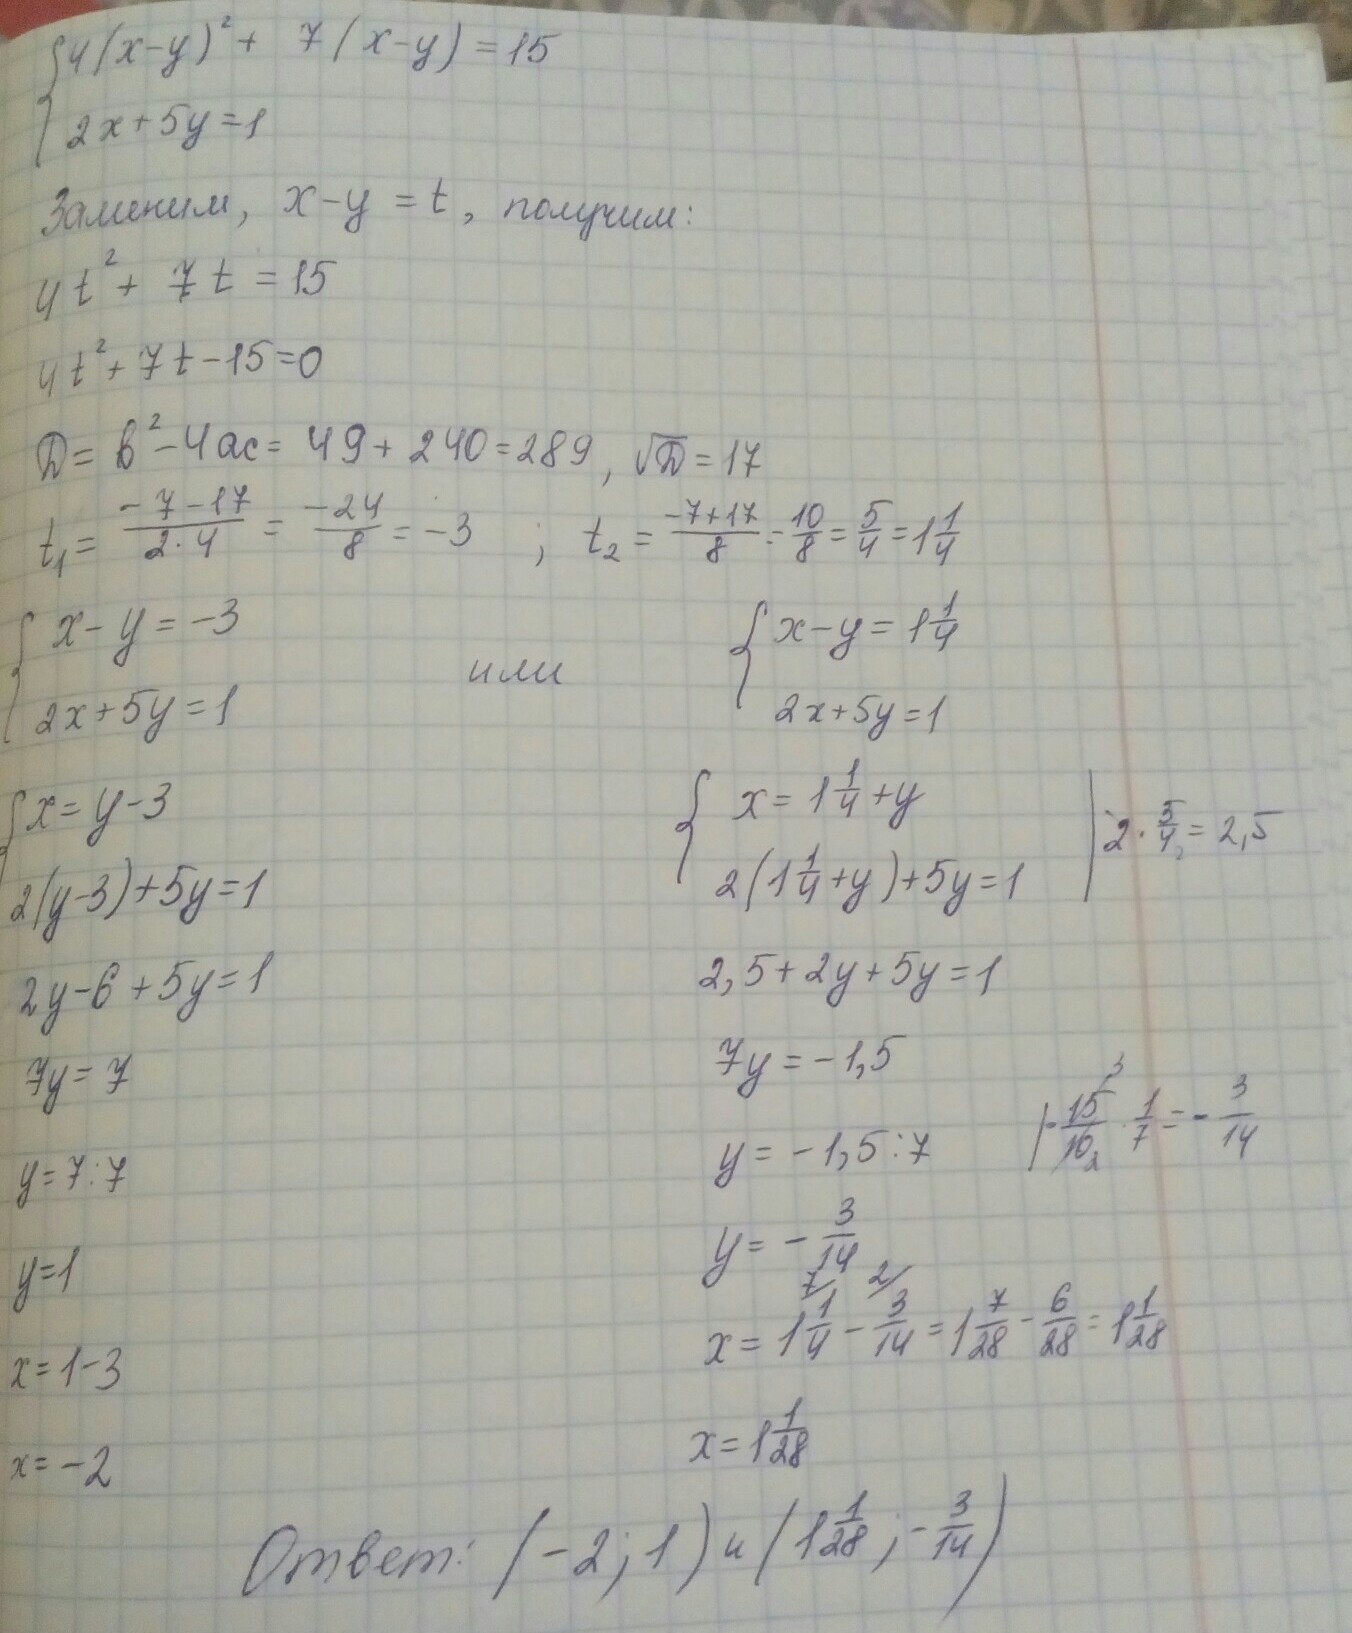 { 4(x-y)² + 7(x-y) = 15
2x+5y=1
Заменим, x-y=t, получим:
4t² + 7t = 15
4t² + 7t - 15 = 0
D = b² - 4ac = 49 + 240 = 289, √D = 17
t₁ = (-7-17)/(2·4) = -24/8 = -3 ; t₂ = (-7+17)/8 = 10/8 = 5/4 = 1 1/4
{ x-y=-3
2x+5y=1
или
{ x-y = 1 1/4
2x+5y=1
{ x=y-3
2(y-3)+5y=1
2y-6+5y=1
7y=7
y=7:7
y=1
x=1-3
x=-2
{ x = 1 1/4 + y
2(1 1/4 + y)+5y=1
| 2 · 5/4 = 2,5
2,5+2y+5y=1
7y=-1,5
y=-1,5:7
| -15/10 · 1/7 = -3/14
3
2
y = -3/14
7/ 2/
x = 1 1/4 - 3/14 = 1 7/28 - 6/28 = 1 1/28
x = 1 1/28
Ответ: (-2; 1) и (1 1/28; -3/14)